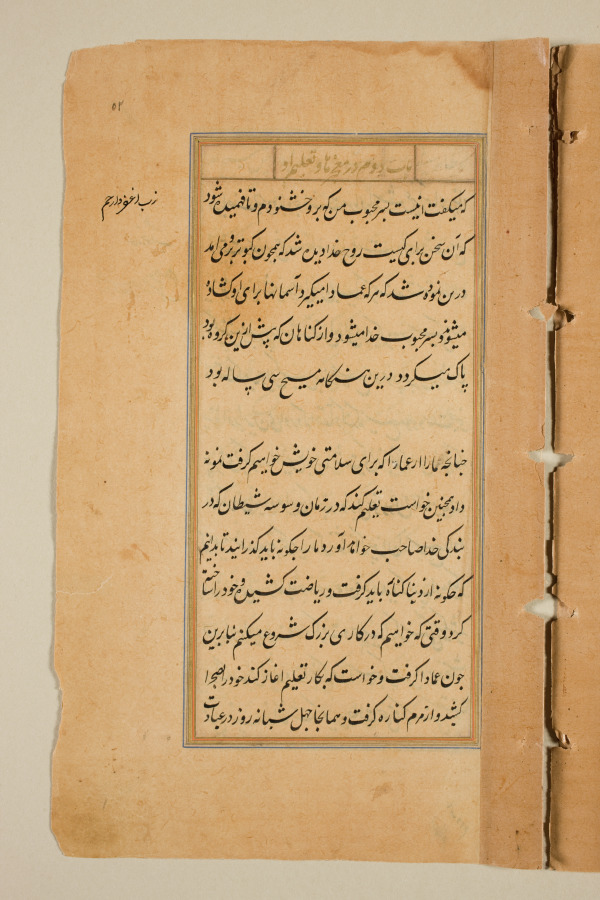 ۵۲
باب دوم در معجزها و تعلیم او
که میگفت اینست پسر محبوب من که برو خشنودم و تا فهمیده شود
که آن سخن برای کیست روح خدا دیده شد که همچون کبوتر برو می آمد
درین نموده شد که هر که عماد را میگیرد آسمانها برای او کشاده
میشود و پسر محبوب خدا میشود و از کناهان که پیش ازین کرده بود
پاک میکردد درین هنکامه مسیح سی ساله بود
چنانچه مارا از عماد که برای سلامتی خویش خواهیم کرفت نمونه
داد همچنین خواست تعلیم کند که در زمان وسوسه شیطان که در
بندکی خدا صاحب خواهد آورد ما را چکونه باید کذرانید تا بدانیم
که چکونه از دنیا کناره باید کرفت و ریاضت کشیده خود را ساختن
کرد وقتی که خواهیم که در کاری بزرک شروع میکنم بنابرین
چون عماد را کرفت و خواست که بکار تعلیم آغاز کند خود را بصحرا
کشید و از مردم کناره کرفت و همانجا چهل شبانه روز در عبادت